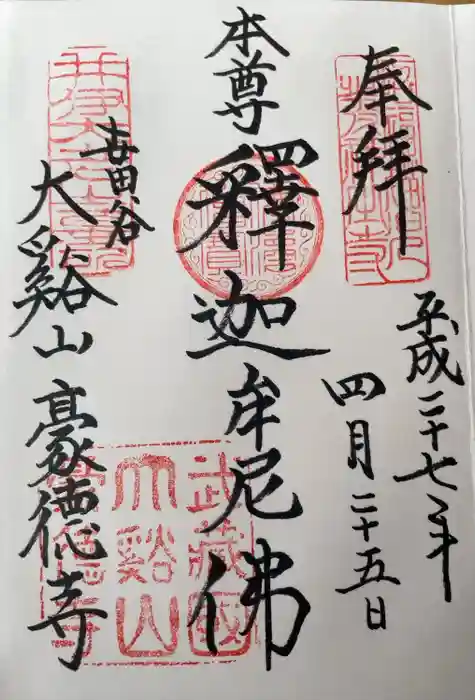 奉拝
平成二十七年
四月二十五日
本尊
釋迦牟尼佛
世田谷
大谿山
豪德寺
武藏國
大谿山
豪德寺